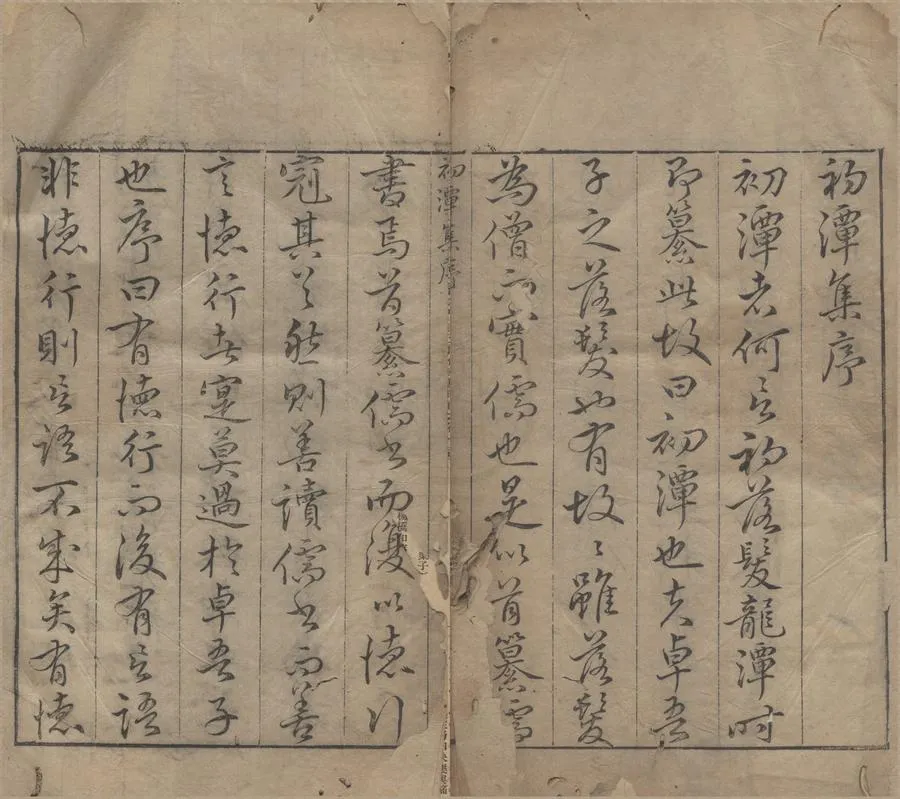 初潭集序
初潭者何言初落髮龍潭時
即纂此故曰初潭也夫卓吾
子之落髮也有故故雖落髮
為僧而實儒也是以首纂儒
初潭集序
書焉首纂儒書而復以德行
冠其首然則善讀儒書而善
言德行者實莫過於卓吾子
也序曰有德行而後有言語
非德行則言語不成矣有德